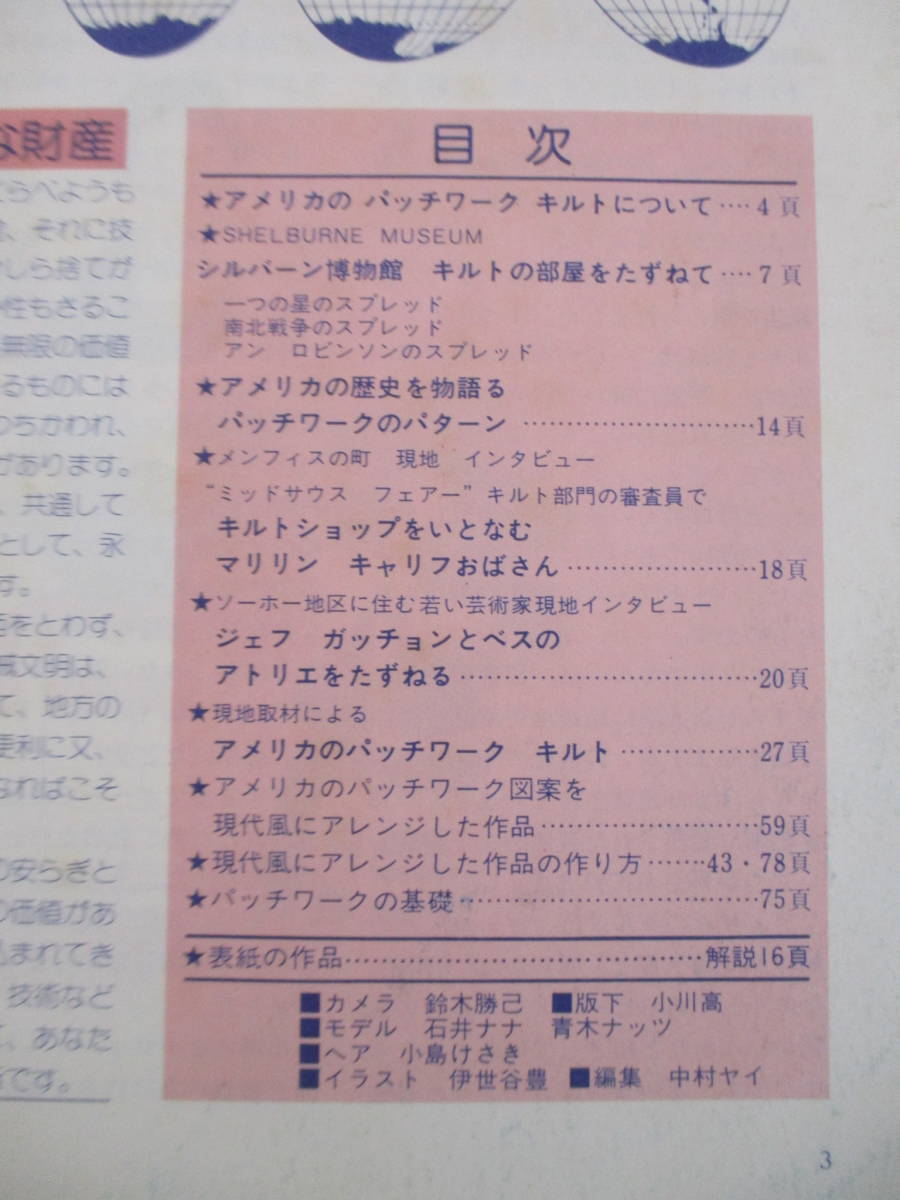 な財産
くらべようも
、それに技
しら捨てが
性もさるこ
無限の価値
るものには
つちかわれ、
があります。
、共通して
として、永
す。
をとわず、
械文明は、
て、地方の
便利に又、
なればこそ
の安らぎと
の価値があ
込まれてき
技術など
、あなた
です。
目 次
★アメリカの パッチワーク キルトについて‥‥4頁
★SHELBURNE MUSEUM
シルバーン博物館 キルトの部屋をたずねて‥‥7頁
一つの星のスプレッド
南北戦争のスプレッド
アン ロビンソンのスプレッド
★アメリカの歴史を物語る
パッチワークのパターン ………………………14頁
★メンフィスの町 現地 インタビュー
“ミッドサウス フェアー”キルト部門の審査員で
キルトショップをいとなむ
マリリン キャリフおばさん……………………18頁
★ソーホー地区に住む若い芸術家現地インタビュー
ジェフ ガッチョンとベスの
アトリエをたずねる………………………………20頁
★現地取材による
アメリカのパッチワーク キルト………………27頁
★アメリカのパッチワーク図案を
現代風にアレンジした作品………………………59頁
★現代風にアレンジした作品の作り方……43・78頁
★パッチワークの基礎………………………………75頁
★表紙の作品……………………………………解説16頁
■カメラ 鈴木勝己 ■版下 小川高
■モデル 石井ナナ 青木ナッツ
■ヘア 小島けさき
■イラスト 伊世谷豊 ■編集 中村ヤイ
3